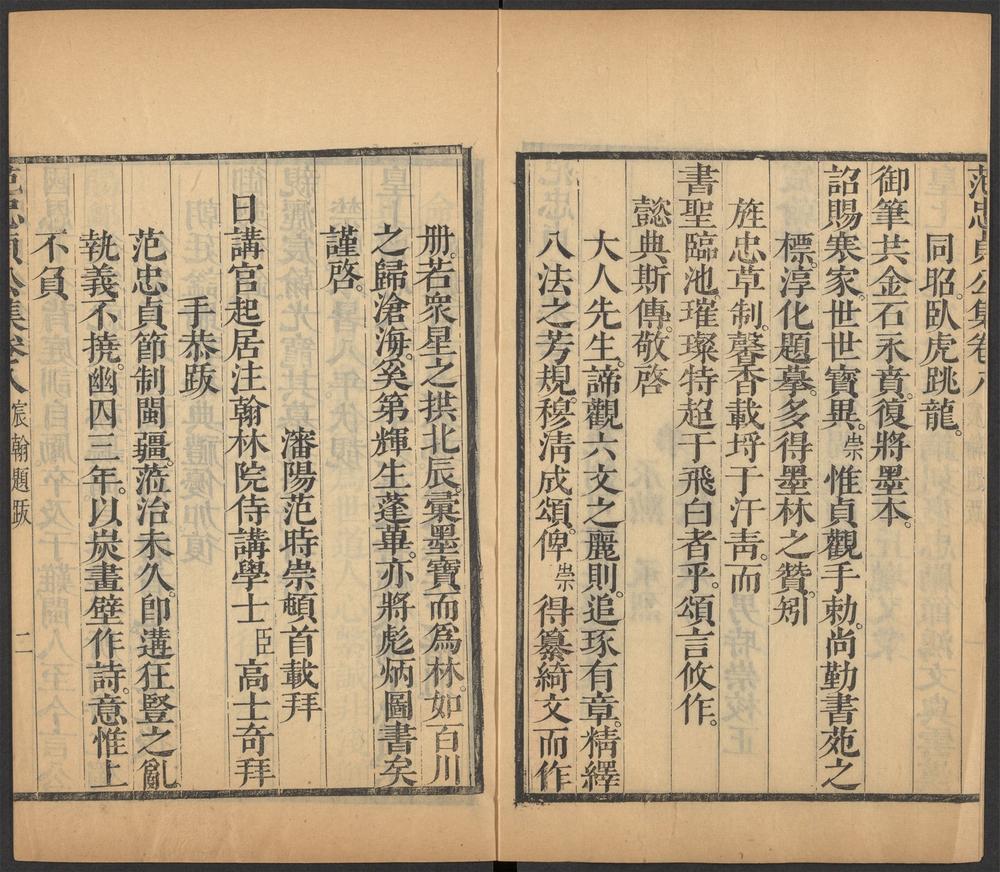 范忠貞公集卷八
同昭。臥虎跳龍。
御筆共金石永賁。復將墨本。
詔賜寒家。世世寶異。崇惟貞觀手勅。尚勤書苑之
標。淳化題摹。多得墨林之贊。矧
旌忠草制。馨香載埒于汗靑。而
書聖臨池。璀璨特超于飛白者乎。頌言攸作。
懿典斯傳。敬啓
大人先生。諦觀六文之麗則。追琢有章。精繹
八法之芳規。穆淸成頌。俾崇得纂綺文而作
册。若衆星之拱北辰。彙墨寶而爲林。如百川
之歸滄海。矣第輝生蓬蓽。亦將彪炳圖書矣
謹啓。
瀋陽范時崇頓首載拜
日講官起居注翰林院侍講學士臣高士奇拜
手恭跋
范忠貞節制閩疆。蒞治未久。卽遘狂豎之亂
執義不撓。幽囚三年。以炭畫壁作詩。意惟上
不負
范忠貞公集卷八 宸翰題跋 二